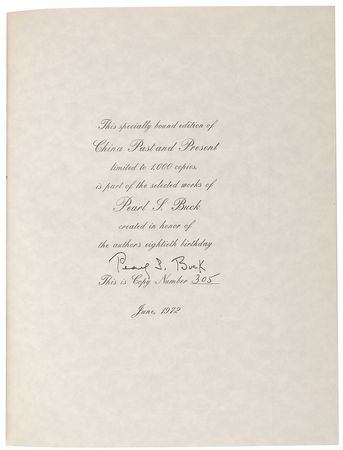 This specially bound edition of
China Past and Present
limited to 1,000 copies,
is part of the selected works of
Pearl S. Buck
created in honor of
the authors eightieth birthday
Pearl S. Buck
This is Copy Number 305
June, 1972